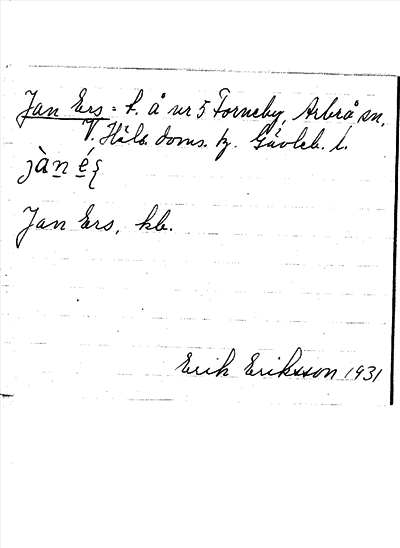 Jan Ers = h. å nr 5 Forneby, Arbrå sn,
V. Häls. doms. hg. Gävleb. l.
jàn é
Jan Ers, kb.
Erik Eriksson 1931